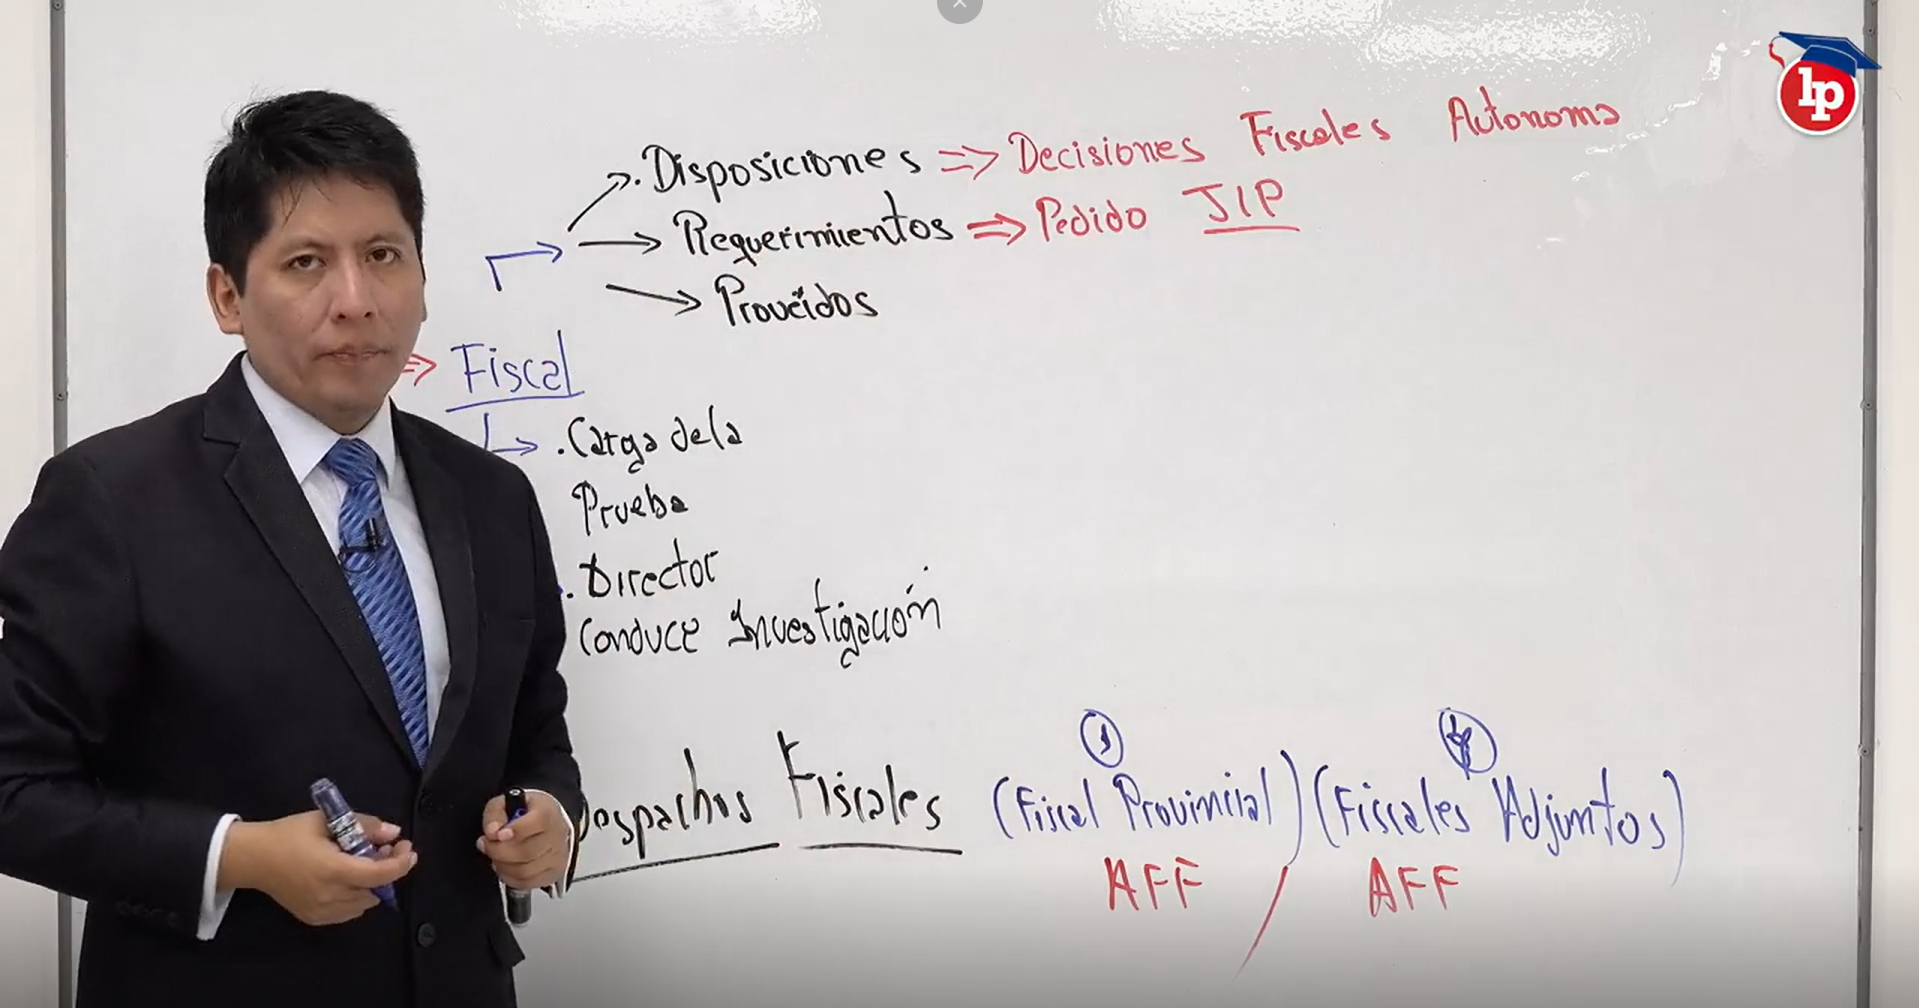 lp
. Disposiciones => Decisiones Fiscales Autonoma
Requerimientos => Pedido JIP
Proveidos
=> Fiscal
. Carga de la
Prueba
. Director
Conduce Investigación
Despachos Fiscales (Fiscal Provincial) (Fiscales Adjuntos)
AFF / AFF